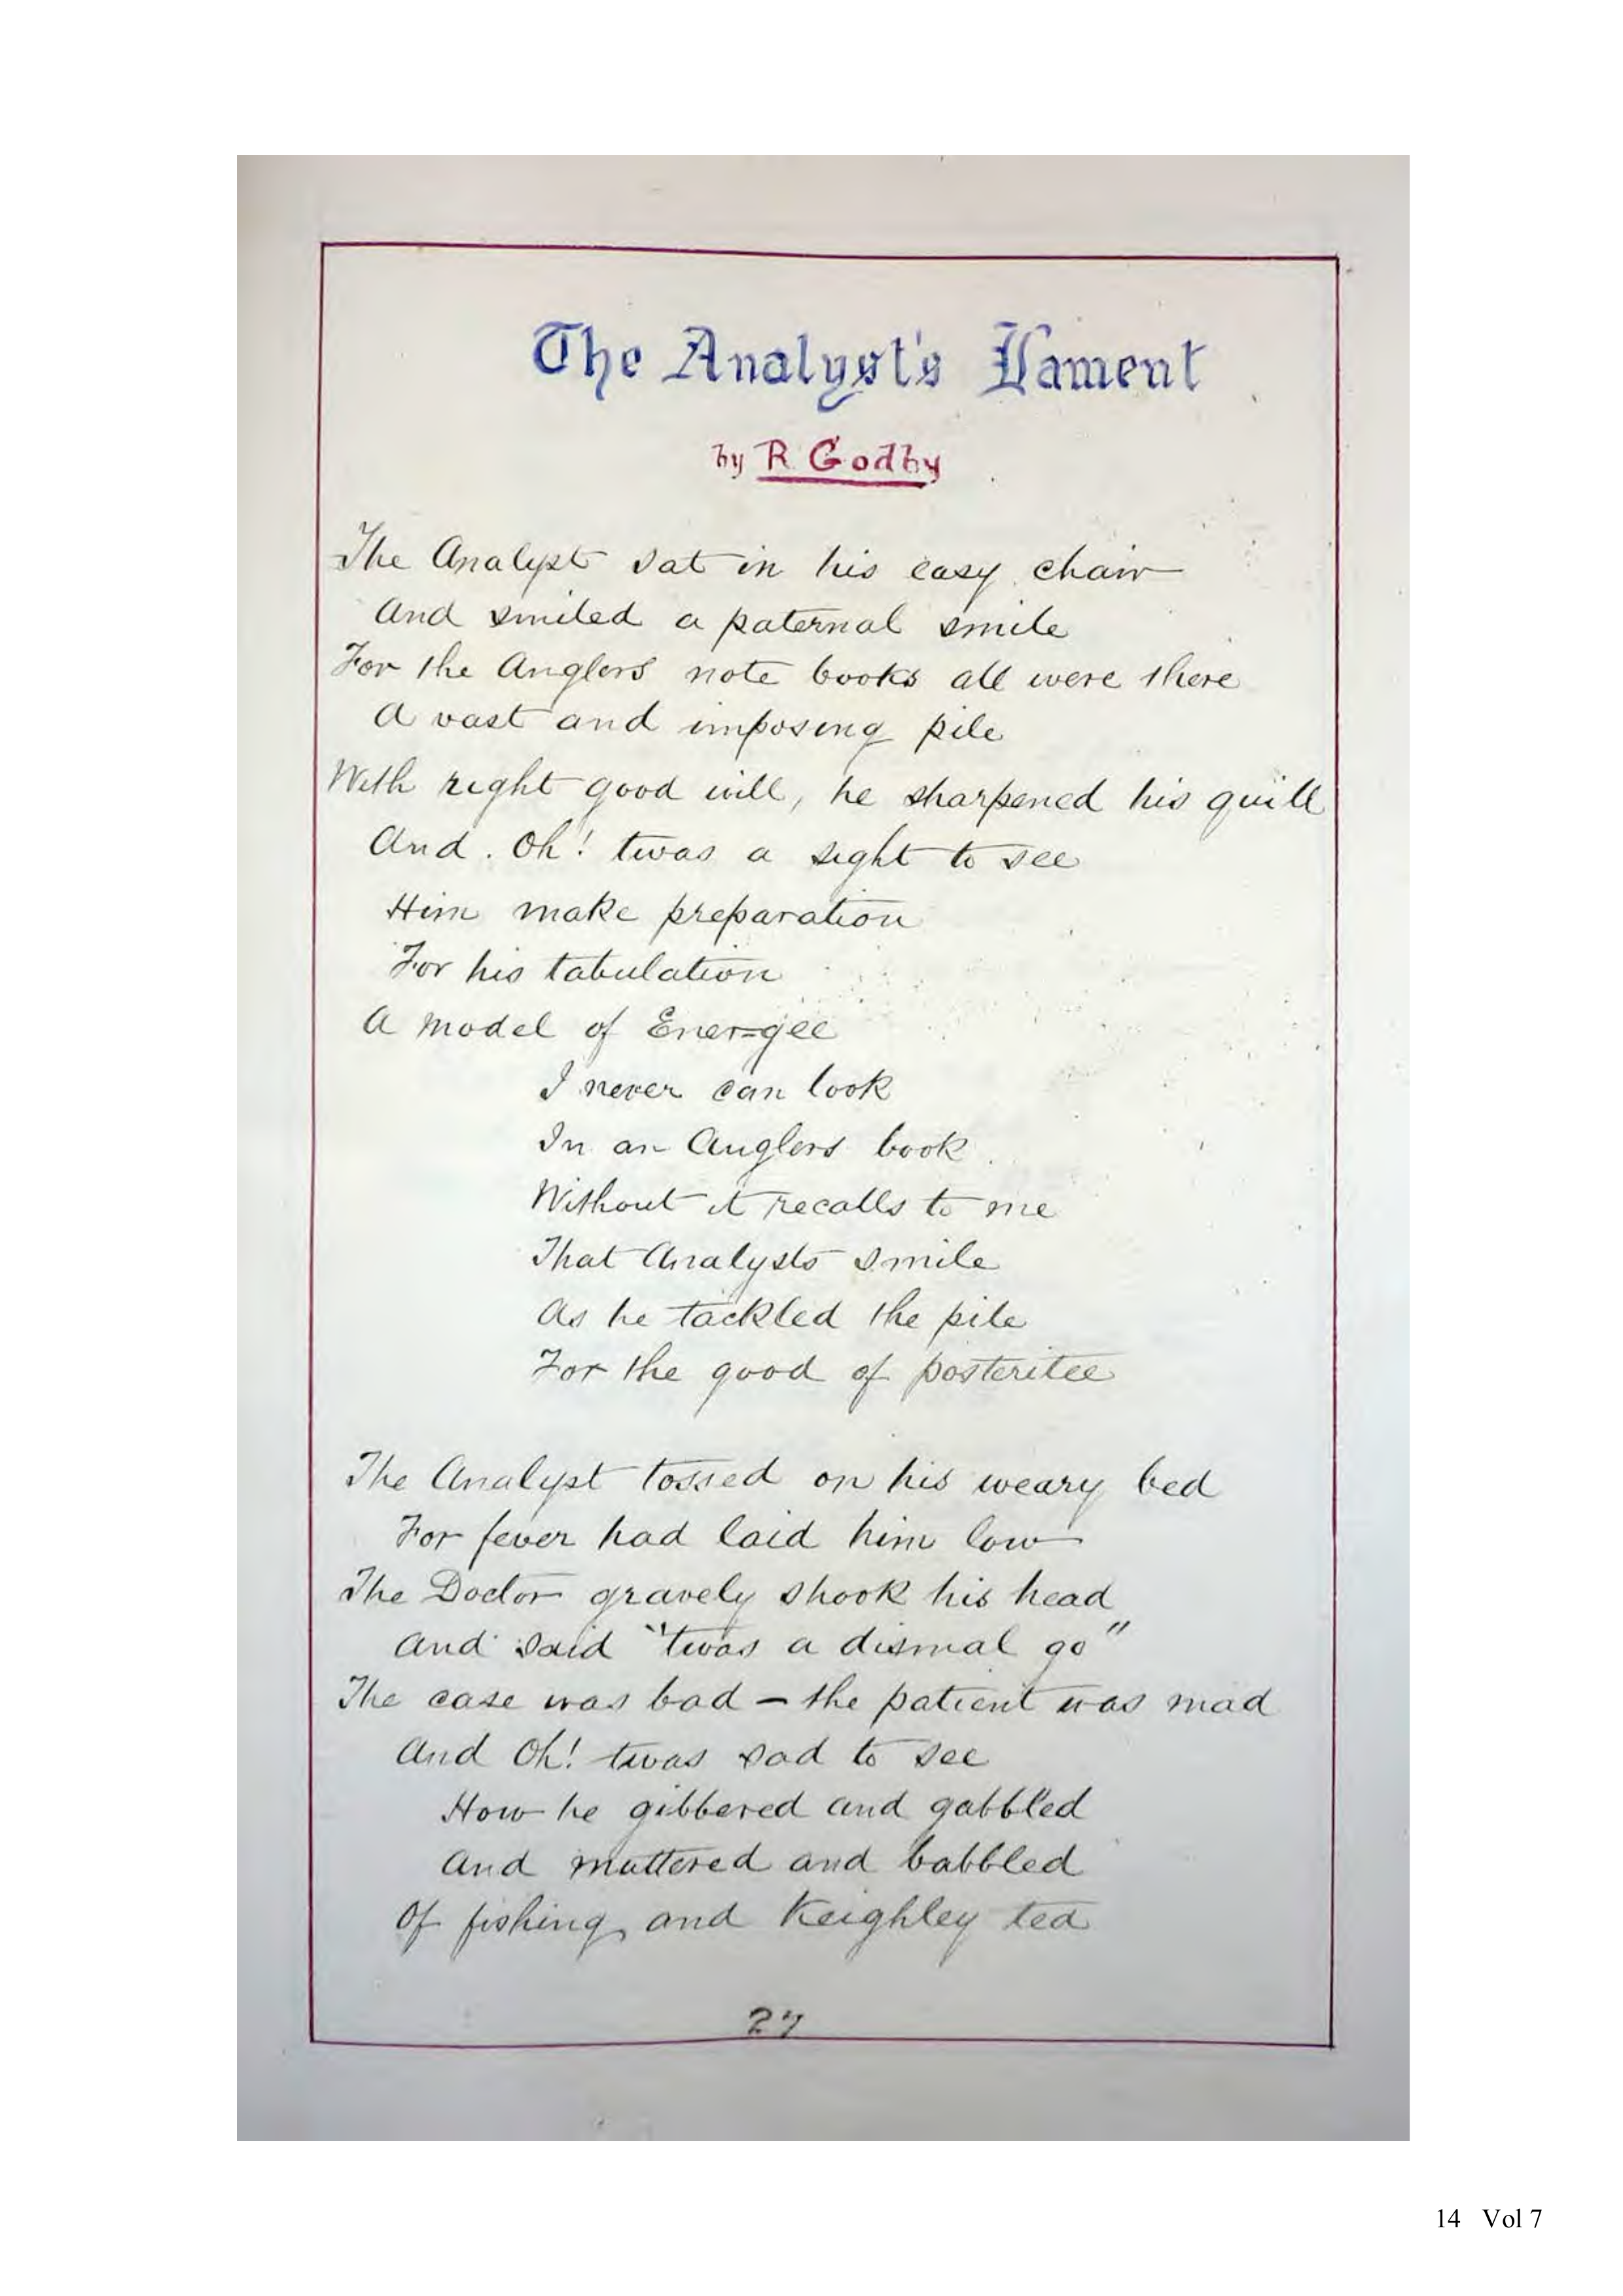 The Analyst's Lament
by R Godby
The Analyst sat in his easy chair
And smiled a paternal smile
For the Anglers note books all were there
A vast and imposing pile
With right good will, he sharpened his quill
And. Oh! twas a sight to see
Him make preparation
For his tabulation
A model of Ener=gee
I never can look
In an Anglers book
Without it recalls to me
That Analysts smile
As he tackled the pile
For the good of posteritee
The Analyst tossed on his weary bed
For fever had laid him low
The Doctor gravely shook his head
And said "twas a dismal go"
The case was bad – the patient was mad
And Oh! twas sad to see
How he gibbered and gabbled
And muttered and babbled
Of fishing, and Keighley tea
27
14 Vol 7